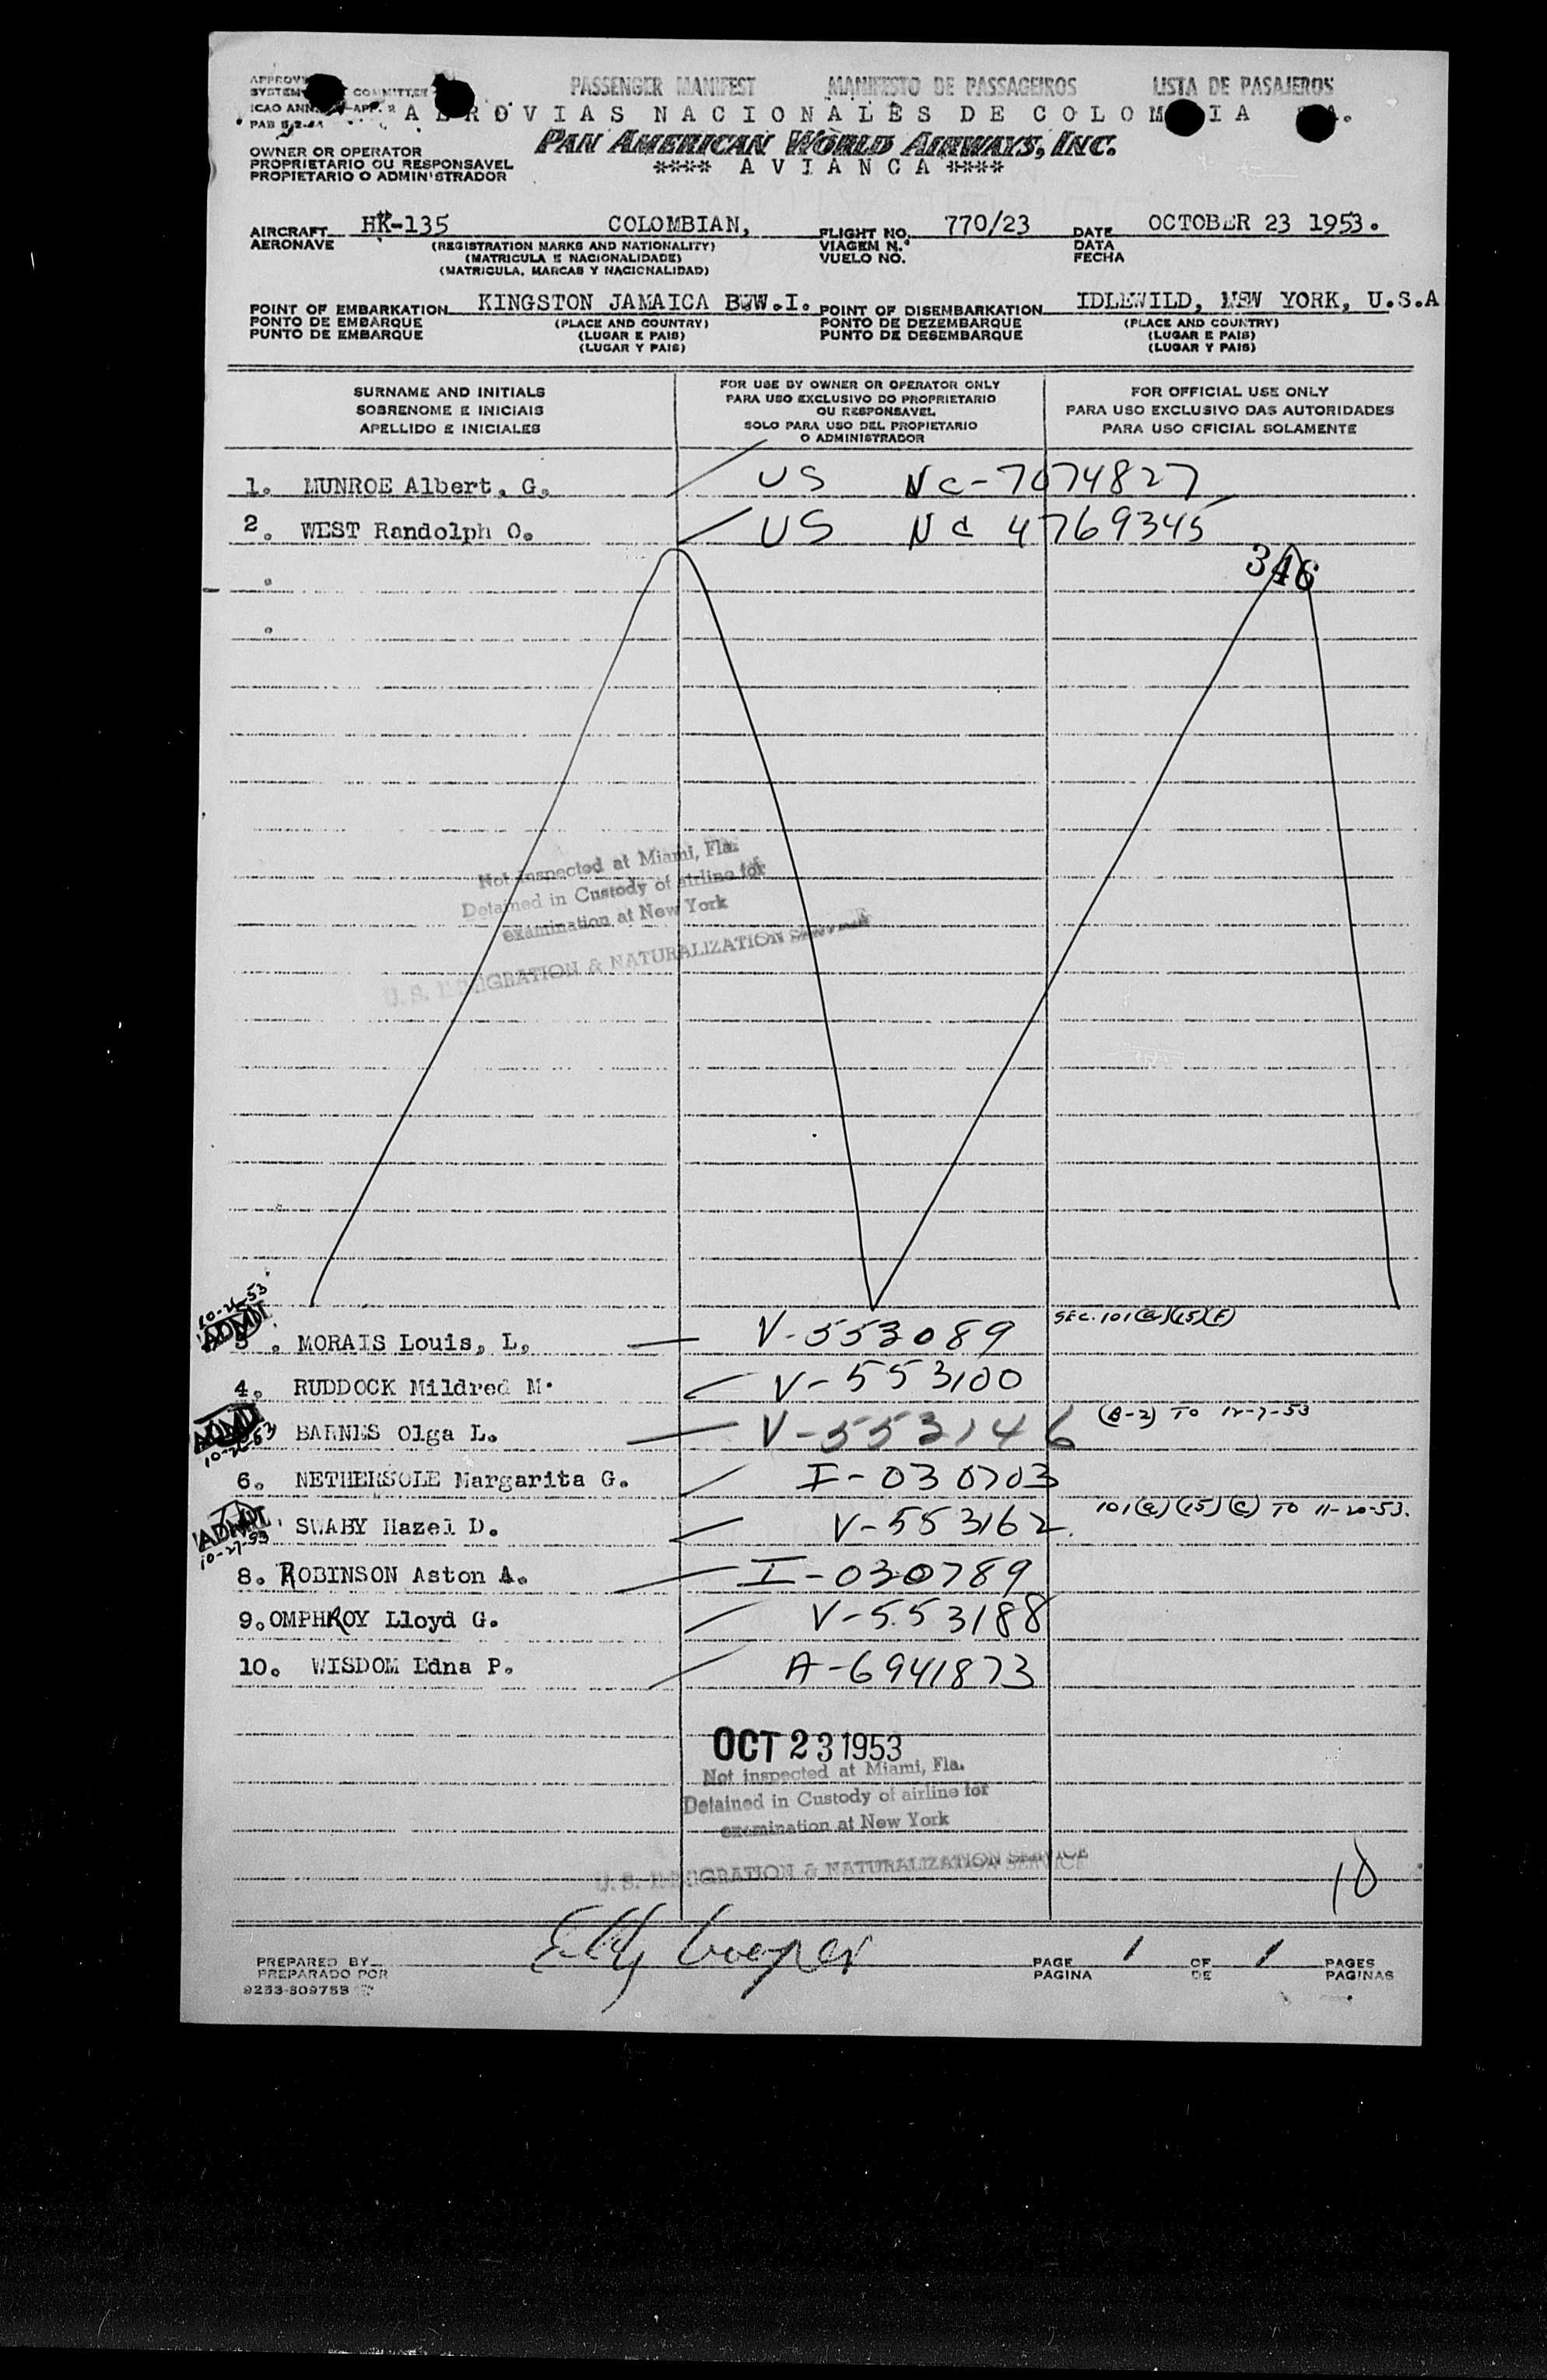 PASSENGER MANIFEST MANIFESTO DE PASSAGEIROS LISTA DE PASAJEROS
APPROV
SYSTEM COMMITTEE
ICAO ANN APP. 2
PAB
A ROVIAS NACIONALES DE COLOM IA A.
PAN AMERICAN WORLD AIRWAYS, INC.
**** AVIANCA ****
OWNER OR OPERATOR
PROPRIETARIO OU RESPONSAVEL
PROPIETARIO O ADMIN'STRADOR
AIRCRAFT HK-135 COLOMBIAN, FLIGHT NO. 770/23 DATE OCTOBER 23 1953.
AERONAVE (REGISTRATION MARKS AND NATIONALITY) VIAGEM N.° DATA
(MATRICULA E NACIONALIDADE) VUELO NO. FECHA
(MATRICULA, MARCAS Y NACIONALIDAD)
POINT OF EMBARKATION KINGSTON JAMAICA BWW.I. POINT OF DISEMBARKATION IDLEWILD, NEW YORK, U.S.A
PONTO DE EMBARQUE (PLACE AND COUNTRY) PONTO DE DEZEMBARQUE (PLACE AND COUNTRY)
PUNTO DE EMBARQUE (LUGAR E PAIS) PUNTO DE DESEMBARQUE (LUGAR E PAIS)
(LUGAR Y PAIS) (LUGAR Y PAIS)
SURNAME AND INITIALS
SOBRENOME E INICIAIS
APELLIDO E INICIALES
FOR USE BY OWNER OR OPERATOR ONLY
PARA USO EXCLUSIVO DO PROPRIETARIO
OU RESPONSAVEL
SOLO PARA USO DEL PROPIETARIO
O ADMINISTRADOR
FOR OFFICIAL USE ONLY
PARA USO EXCLUSIVO DAS AUTORIDADES
PARA USO OFICIAL SOLAMENTE
1. MUNROE Albert, G. US NC-7074827
2. WEST Randolph O. US NC 4769345
346
Not inspected at Miami, Fla.
Detained in Custody of airline for
examination at New York
U. S. IMMIGRATION & NATURALIZATION SERVICE
10-26-53
ADMT
SEC. 101(a)(15)(F)
3. MORAIS Louis, L. V-553089
4. RUDDOCK Mildred M. V-553100
ADMT BARNES Olga L. V-553146 (B-2) TO 12-7-53
10-26-53
6. NETHERSOLE Margarita G. I-030703
ADMT SWABY Hazel D. V-553162 101(a)(15)(C) TO 11-20-53.
10-27-53
8. ROBINSON Aston A. I-030789
9. OMPHROY Lloyd G. V-553188
10. WISDOM Edna P. A-6941873
OCT 23 1953
Not inspected at Miami, Fla.
Detained in Custody of airline for
examination at New York
U. S. IMMIGRATION & NATURALIZATION SERVICE
10
PREPARED BY Cooper PAGE 1 OF 1 PAGES
PREPARADO POR PAGINA DE PAGINAS
9253-309753